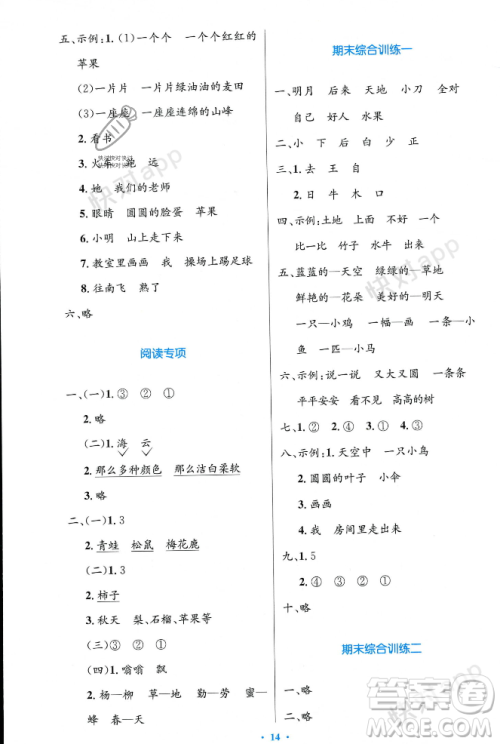 五、示例:1.(1)一个个 一个个红红的
苹果
(2)一片片 一片片绿油油的麦田
(3)一座座 一座座连绵的山峰
2.看书
3.火车 跑 远
4.她 我们的老师
5.眼睛 圆圆的脸蛋 苹果
6.小明 山上走下来
7.教室里画画 操场上踢足球
8.往南飞 熟了
六、略
阅读专项
一、(一)1.③ ② ①
2.略
(二)1.海 云
2.那么多种颜色 那么洁白柔软
3.略
二、(一)1.3
2.青蛙 松鼠 梅花鹿
(二)1.3
2.柿子
3.秋天 梨、石榴、苹果等
(三)② ③ ①
(四)1.嗡嗡 飘
2.略
蜂 春天
期末综合训练一
一、明月 后来 天地 小刀 全对
自己 好人 水果
二、小 下 后 白 少 正
三、1.去 王 自
2.日 牛 木 口
四、示例:土地 上面 不好 一个
比一比 竹子 水牛 大风
五、蓝蓝的—天空 绿绿的—草地
鲜艳的—花朵 美好的—明天
一只—小鸡 一幅—画 一条—小
鱼 一匹—小马
六、示例:说一说 又大又圆 一条条
平平安安 看一看 高高的树
七、1.② 2.① 3.② 4.①
八、示例:1.天空中 一只小鸟
2.圆圆的叶子 小伞
3.画画
4.我 房间里走出来
九、1.5
2.④ ③ ② ①
十、略
期末综合训练二
一、略
二、略
14
快对app
快对app
快对app
答案圈